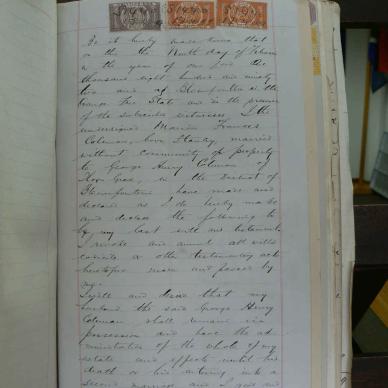 Be it hereby made known that
on this the Ninth day of
in the year of our Lord One
thousand eight hundred and ninety
two and at Bloemfontein in the
Orange Free State and in the presence
of the subscribed witnesses I the
undersigned Frances
Coleman, born married
without community of property
to George Henry Coleman of
in the District of
Bloemfontein have made and
declare as I do hereby make
and declare the following to
be my last will and testament
I revoke and annul all wills
codicils or other testamentary acts
heretofore made and passed by
me.
I will and desire that my
husband the said George Henry
Coleman shall remain in
possession and have the ad
ministration of the whole of my
estate and effects until his
death or his entering into a
second marriage and I give and